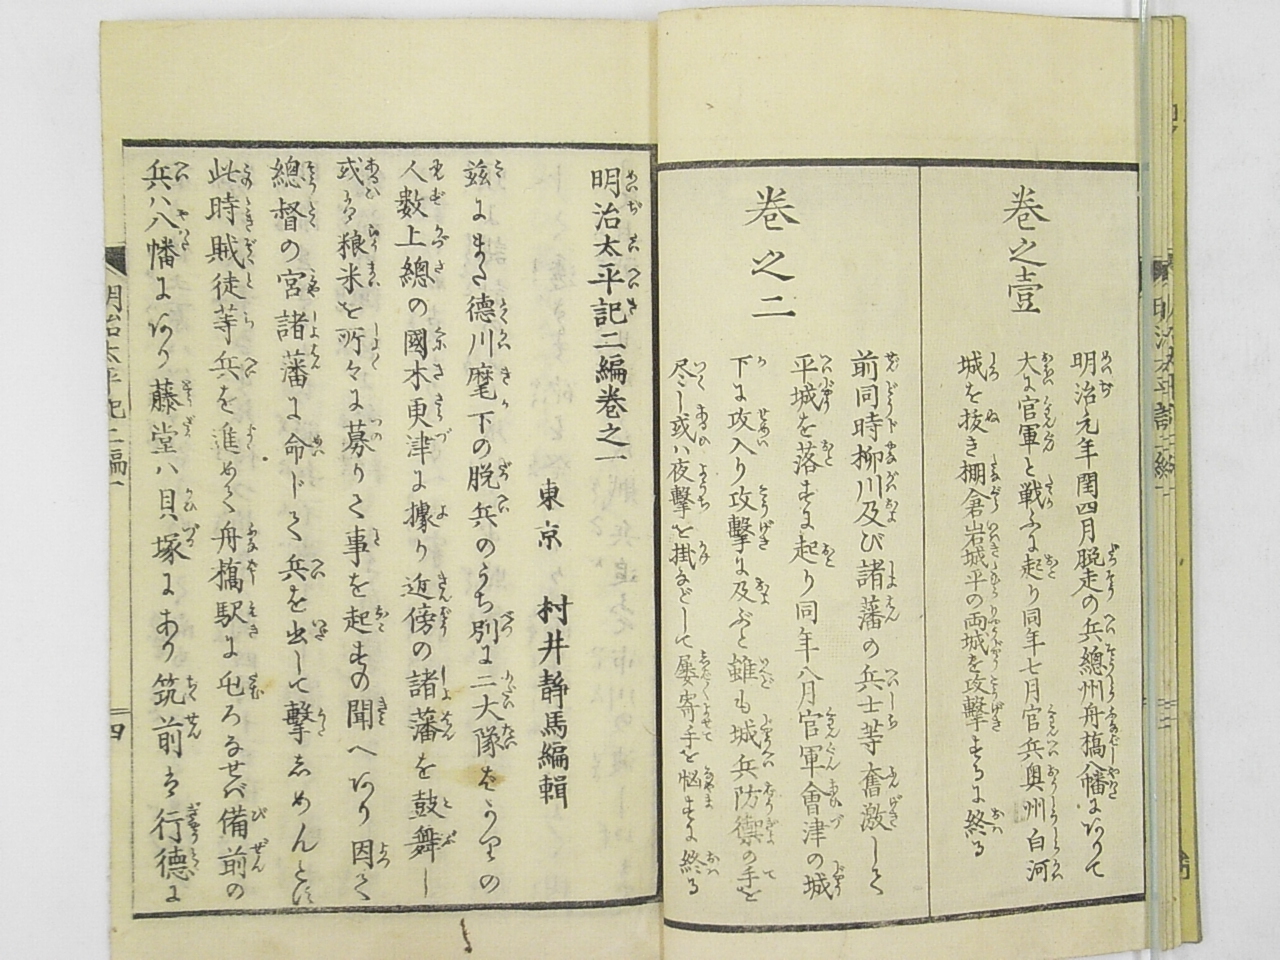 卷之壹
明治元年閏四月脱走の兵總州舟橋八幡に於て
大に官軍と戦ふに起り同年七月官兵奥州白河
城を抜き棚倉岩城平の両城を攻撃するに終る
卷之二
前同時柳川及び諸藩の兵士等奮激して
平城を落すに起り同年八月官軍會津の城
下に攻入り攻撃に及ぶと雖も城兵防禦の手を
尽し或ハ夜撃を掛などして屡寄手を悩すに終る
明治太平記二編卷之一
東京 村井静馬編輯
茲にまた徳川麾下の脱兵のうち別に二大隊ばかりの
人數上總の國木更津に據り近傍の諸藩を鼓舞し
或は粮米を所々に募りて事を起すの聞へあり因て
總督の宮諸藩に命じて兵を出して撃しめんとす
此時賊徒等兵を進めて舟橋駅に屯ろなせバ備前の
兵ハ八幡にあり藤堂ハ貝塚にあり筑前は行德に
明治太平記二編一
四